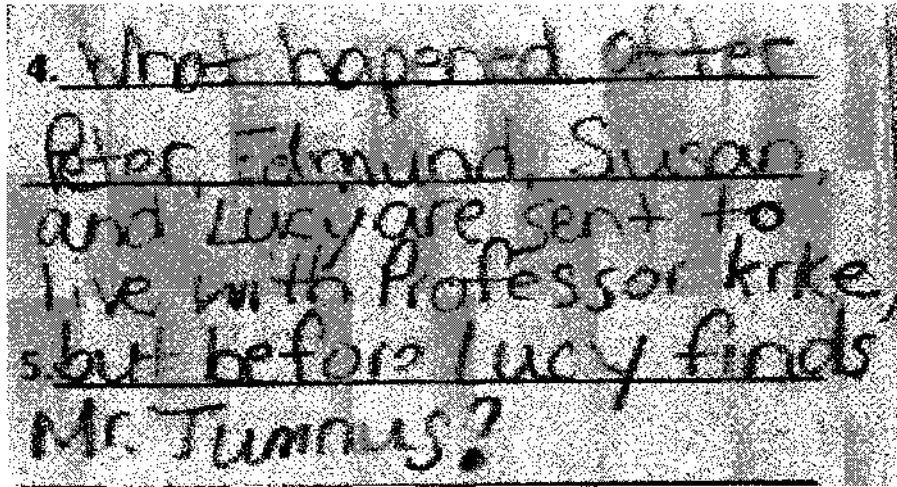 4. What happened after
Peter, Edmund, Susan,
and Lucy are sent to
live with Professor krke,
5. but before Lucy finds
Mr. Tumnus?